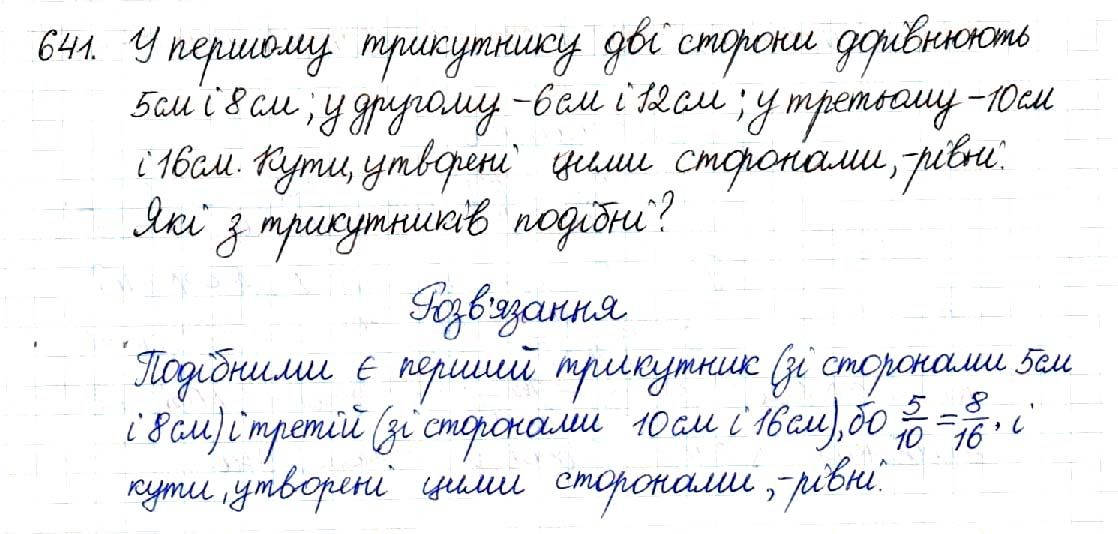 641. У першому трикутнику дві сторони дорівнюють
5см і 8см; у другому - 6см і 12см; у третьому - 10см
і 16см. Кути, утворені цими сторонами, - рівні.
Які з трикутників подібні?
Розв'язання
Подібними є перший трикутник (зі сторонами 5см
і 8см) і третій (зі сторонами 10см і 16см), бо 5/10 = 8/16, і
кути, утворені цими сторонами, - рівні.